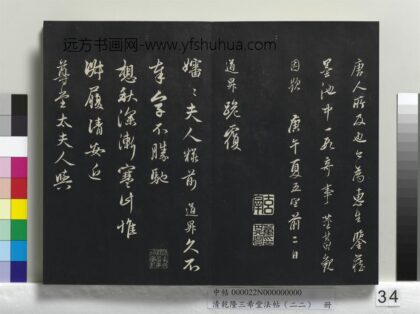 远方书画网-www.yfshuhua.com
唐人所及也今為惠生鑒藏
墨池中一段奇事
因題 庚午夏五望前二日
道昇跪覆
嬸嬸夫人粧前 道昇久不
奉字不勝馳
想秋深漸寒計惟
淑履清安近
尊堂太夫人與
中帖 000022N000000000
清乾隆三希堂法帖（二二） 冊
34